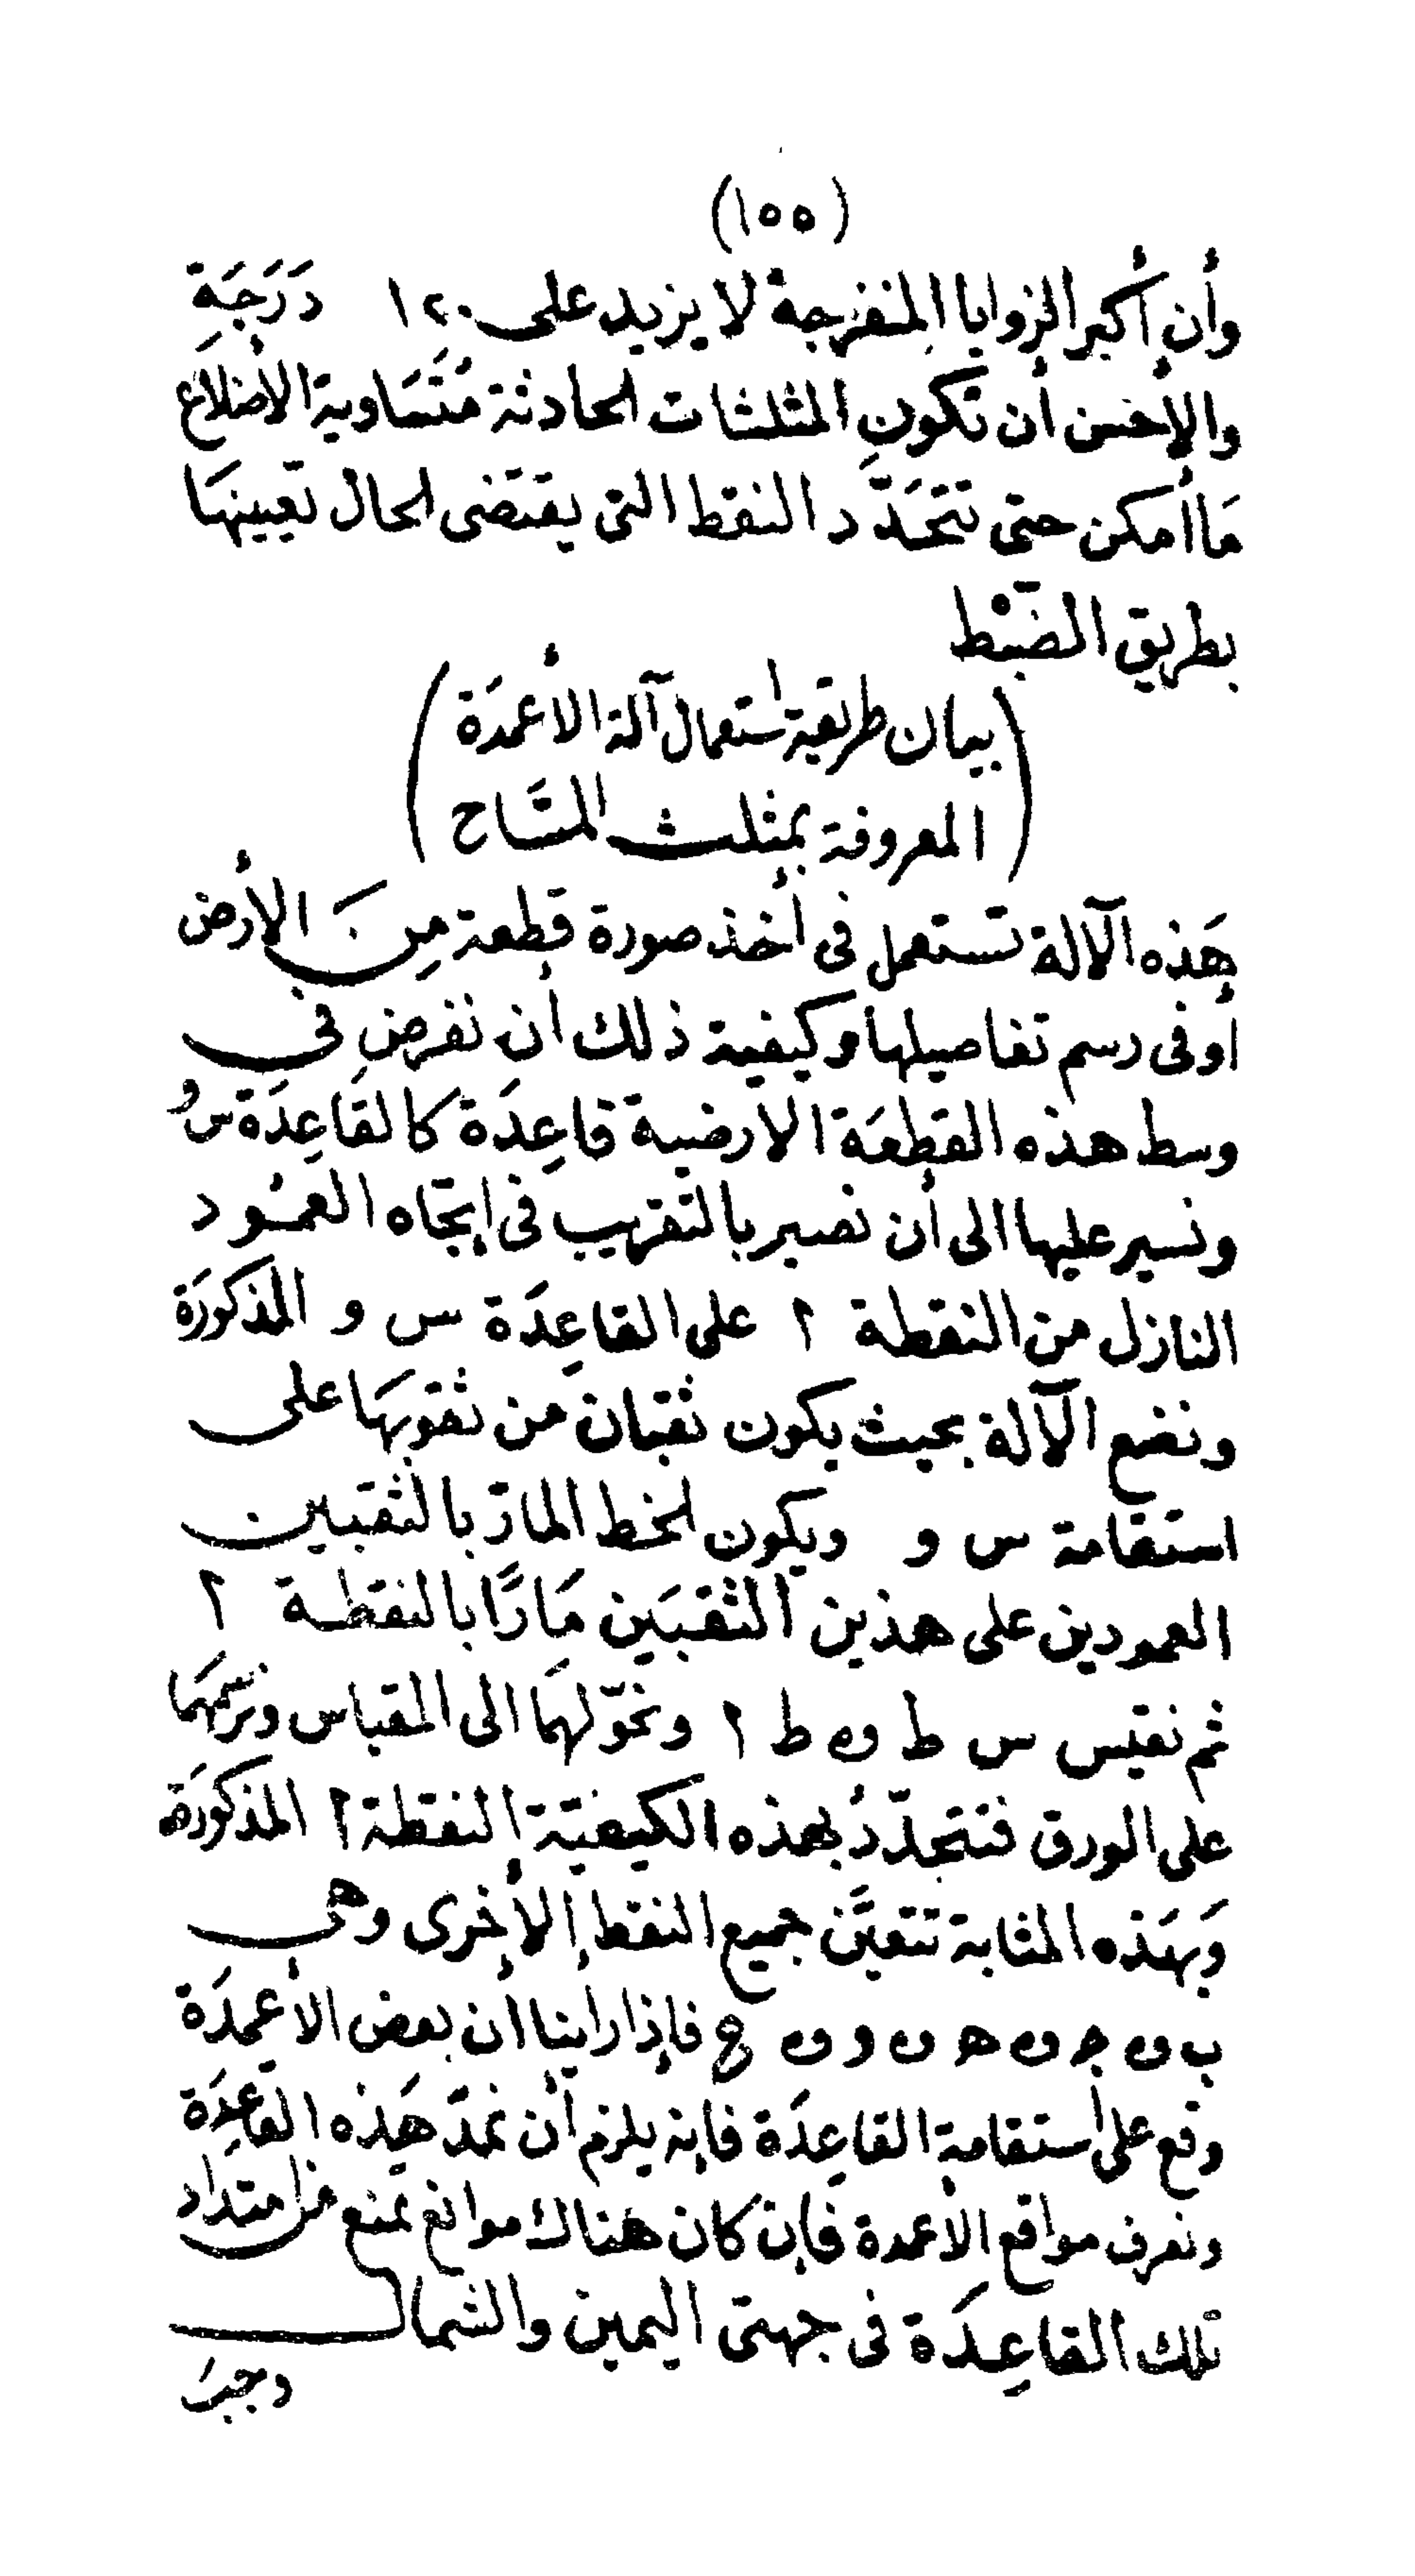 (١٥٥)
وأن أكبر الزوايا المنفرجة لا يزيد على ١٢٠ دَرَجَةٍ
والأحسن أن تكون المثلثات الحادثة مُتَسَاوية الأضلاع
مَا أمكن حتى تتحَدّد النقط التى يقتضى الحال تعيينهَا
بطريق الضَبْط
(بيان طريقة استعمال آلة الأعمدَة
المعروفة بمثلث المسَّاح)
هَذه الآلة تستعمل فى أخذ صورة قطعة مِنَ الأرض
أو فى رسم تفاصيلها وكيفية ذلك أن نفرض فى
وسط هذه القطعَة الارضية قاعِدَة كالقَاعِدَة س و
ونسير عليها الى أن نصير بالتقريب فى إتجَاه العمُود
النازل من النقطة ا على القاعِدَة س و المذكورَة
ونضع الآلة بحيث يكون ثقبان من ثقوبهَا على
استقامة س و ويكون الخط المارّ بالثقبين
العمودين على هذين الثقبَين مَارًّا بالنقطة ا
ثم نقيس س ط و ط ا ونحوّلهمَا الى المقياس ونرسمهمَا
على الورق فتتحدّدُ بهذه الكيفيّة النقطة ا المذكورَة
وَبهَذه المثابة تتعيَّن جميع النقط الأخرى وهى
ب و ج و ه و و و ع فإذا راينا أن بعض الأعمدَة
وقع على استقامة القاعِدَة فإنه يلزم أن نمدّ هَذه القاعِدَة
ونعرف مواقع الأعمدة فإن كان هناك موانع تمنع من امتداد
تلك القاعِدَة فى جهتى اليمين والشمال
وجبَ